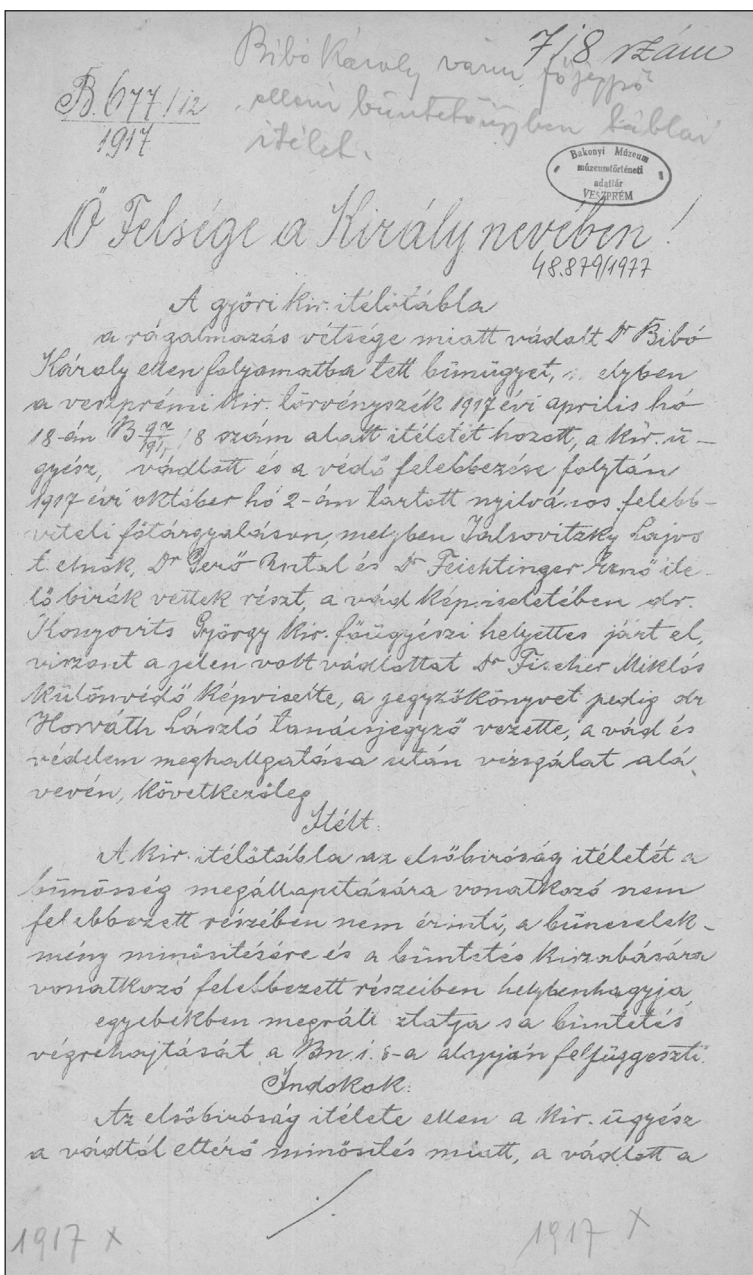 7/8 szám
Bibó Károly várm. főjegyző
elleni büntetőügyben táblai
itélet.
B. 677/12
1917
Bakonyi Múzeum
múzeumtörténeti
adattár
VESZPRÉM
Ő Felsége a Király nevében!
48.879/1977
A győri kir. itélőtábla
a rágalmazás vétsége miatt vádolt Dr Bibó
Károly ellen folyamatba tett bűnügyet, melyben
a veszprémi kir. törvényszék 1917 évi április hó
18-án B 8 szám alatt itéletet hozott, a kir. ü-
gyész, vádlott és a védő felebbezése folytán
1917 évi október hó 2-án tartott nyilvános felebb-
viteli főtárgyaláson, melyben Jalsovitzky Lajos
t. elnök, Dr Gerő Antal és Dr Feichtinger Ernő ité-
lő birák vettek részt, a vád képviseletében dr.
Konyovits György kir. főügyészi helyettes járt el,
viszont a jelen volt vádlottat Dr Fischer Miklós
különvédő képviselte, a jegyzőkönyvet pedig dr
Horváth László tanácsjegyző vezette, a vád és
védelem meghallgatása után vizsgálat alá
vevén, következőleg
Itélt:
A kir. itélőtábla az elsőbiróság itéletét a
bűnösség megállapitására vonatkozó nem
felebbezett részében nem érinti, a büncselek-
mény minősitésére és a büntetés kiszabására
vonatkozó felebbezett részeiben helybenhagyja
egyebekben megváltoztatja s a büntetés
végrehajtását a Bn. 1. §-a alapján felfüggeszti.
Indokok:
Az elsőbiróság itélete ellen a kir. ügyész
a vádtól eltérő minősités miatt, a vádlott a
1917 X
1917 X